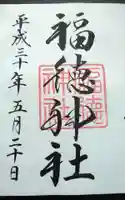 福徳神社
平成三十年 五月二十日